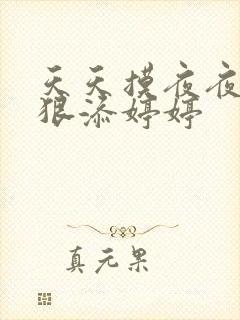 天天摸夜夜
狠添婷婷
真元果